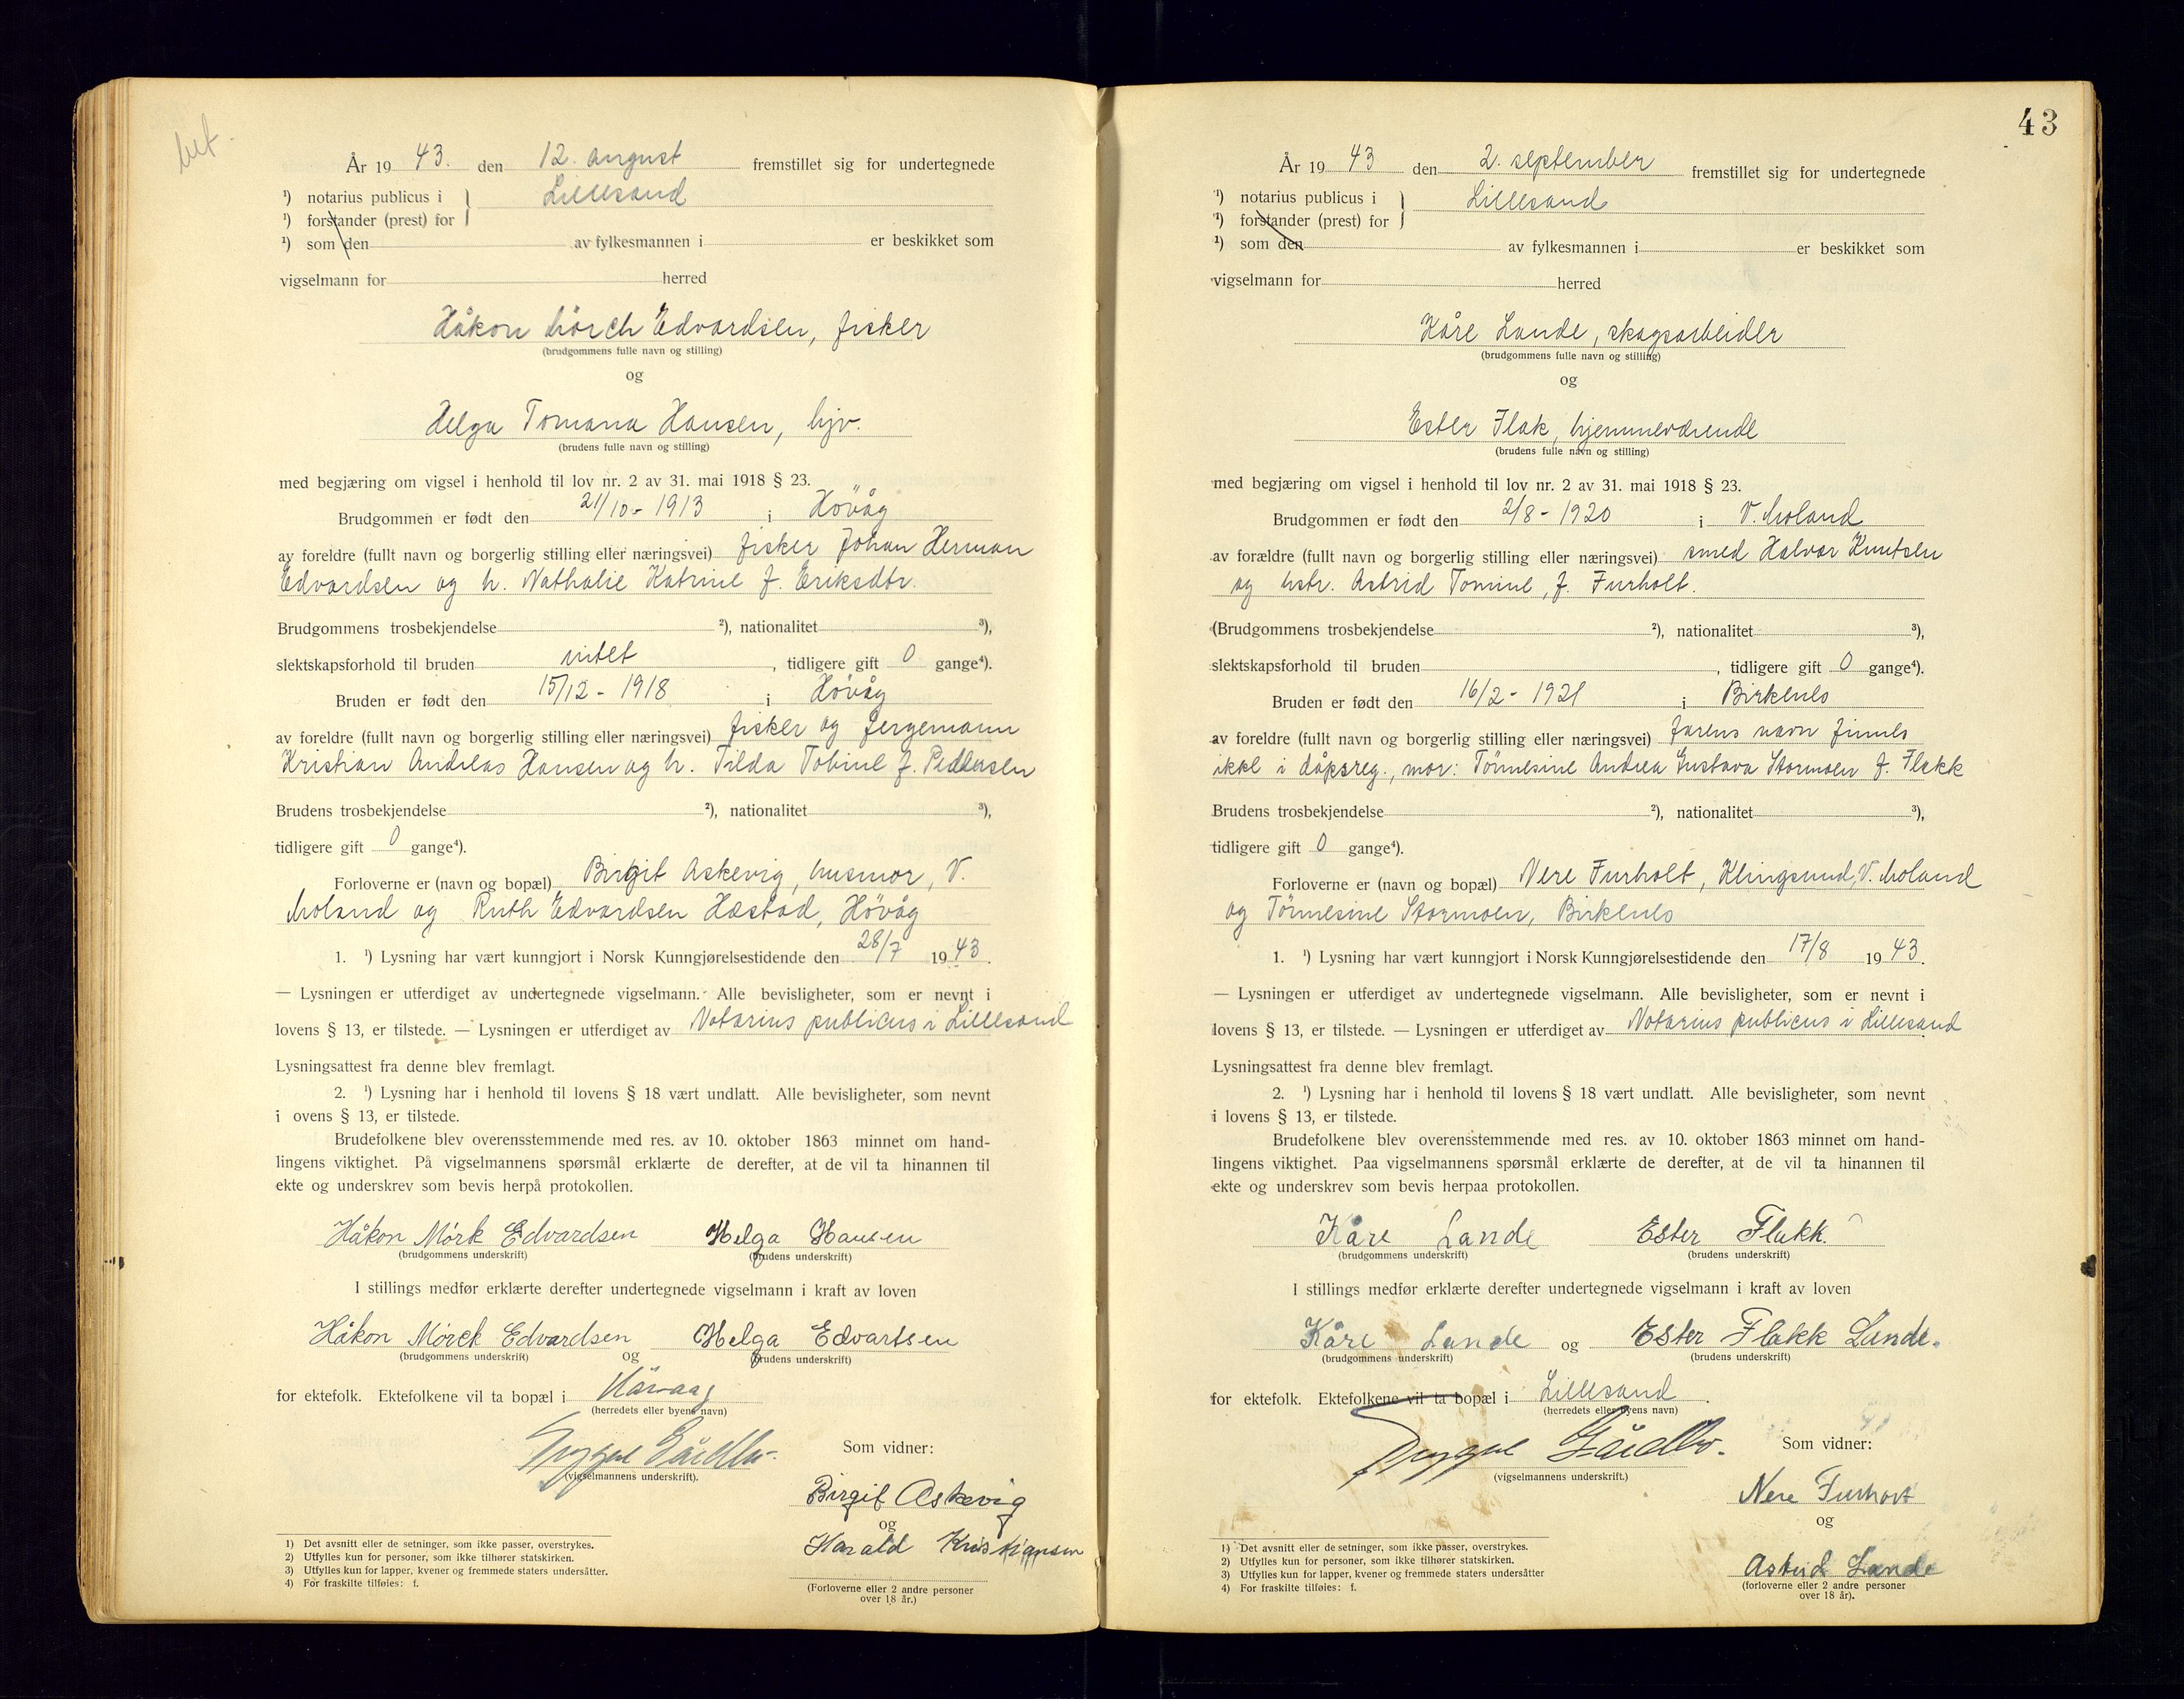 bet.
År 19 43. den 12. august fremstillet sig for undertegnede
¹) notarius publicus i } Lillesand
¹) forstander (prest) for
¹) som den av fylkesmannen i er beskikket som
vigselmann for herred
Håkon Mörch Edvardsen, fisker
(brudgommens fulle navn og stilling)
og
Helga Tomana Hansen, hjv.
(brudens fulle navn og stilling)
med begjæring om vigsel i henhold til lov nr. 2 av 31. mai 1918 § 23.
Brudgommen er født den 21/10 - 1913 i Hövåg
av foreldre (fullt navn og borgerlig stilling eller næringsvei) fisker Johan Herman
Edvardsen og h. Nathalie Katrine f. Eriksdtr.
Brudgommens trosbekjendelse ²), nationalitet ³),
slektskapsforhold til bruden intet, tidligere gift 0 gange⁴).
Bruden er født den 15/12 - 1918 i Hövåg
av foreldre (fullt navn og borgerlig stilling eller næringsvei) fisker og fergemann
Kristian Andreas Hansen og h. Tilda Tobine f. Pedersen
Brudens trosbekjendelse ²), nationalitet ³),
tidligere gift 0 gange⁴).
Forloverne er (navn og bopæl) Birgit Askevig, husmor, V.
Moland og Ruth Edvardsen Hæstad, Hövåg
1. ¹) Lysning har vært kunngjort i Norsk Kunngjørelsestidende den 28/7 19 43.
— Lysningen er utferdiget av undertegnede vigselmann. Alle bevisligheter, som er nevnt i
lovens § 13, er tilstede. — Lysningen er utferdiget av Notarius publicus i Lillesand
Lysningsattest fra denne blev fremlagt.
2. ¹) Lysning har i henhold til lovens § 18 vært undlatt. Alle bevisligheter, som nevnt
i ovens § 13, er tilstede.
Brudefolkene blev overensstemmende med res. av 10. oktober 1863 minnet om hand-
lingens viktighet. På vigselmannens spørsmål erklærte de derefter, at de vil ta hinannen til
ekte og underskrev som bevis herpå protokollen.
Håkon Mörk Edvardsen Helga Hansen
(brudgommens underskrift) (brudens underskrift)
I stillings medfør erklærte derefter undertegnede vigselmann i kraft av loven
Håkon Mörck Edvardsen og Helga Edvartsen
(brudgommens underskrift) (brudens underskrift)
for ektefolk. Ektefolkene vil ta bopæl i Hövaag
(herredets eller byens navn)
Trygve
(vigselmannens underskrift).
Som vidner:
Birgit Askevig
og
Harald Kristiansen
(Forloverne eller 2 andre personer
over 18 år.)
1) Det avsnitt eller de setninger, som ikke passer, overstrykes.
2) Utfylles kun for personer, som ikke tilhører statskirken.
3) Utfylles kun for lapper, kvener og fremmede staters undersåtter.
4) For fraskilte tilføies: f.
43
År 19 43 den 2. september fremstillet sig for undertegnede
¹) notarius publicus i } Lillesand
¹) forstander (prest) for
¹) som den av fylkesmannen i er beskikket som
vigselmann for herred
Kåre Lande, skogsarbeider
(brudgommens fulle navn og stilling)
og
Ester Flak, hjemmeværende
(brudens fulle navn og stilling)
med begjæring om vigsel i henhold til lov nr. 2 av 31. mai 1918 § 23.
Brudgommen er født den 2/8 - 1920 i V. Moland
av forældre (fullt navn og borgerlig stilling eller næringsvei) smed Halvor Knutsen
og hstr. Astrid Tomine, f. Furholt.
(Brudgommens trosbekjendelse ²), nationalitet ³),
slektskapsforhold til bruden, tidligere gift 0 gange⁴).
Bruden er født den 16/2 - 1921 i Birkenes
av foreldre (fullt navn og borgerlig stilling eller næringsvei) farens navn finnes
ikke i dåpsreg., mor: Tönnesine Andrea Gustava Stormoen f. Flakk
Brudens trosbekjendelse ²), nationalitet ³),
tidligere gift 0 gange⁴).
Forloverne er (navn og bopæl) Nere Furholt, Klingsund, V. Moland
og Tönnesine Stormoen, Birkenes
1. ¹) Lysning har vært kunngjort i Norsk Kunngjørelsestidende den 17/8 19 43.
— Lysningen er utferdiget av undertegnede vigselmann. Alle bevisligheter, som er nevnt i
lovens § 13, er tilstede. — Lysningen er utferdiget av Notarius publicus i Lillesand
Lysningsattest fra denne blev fremlagt.
2. ¹) Lysning har i henhold til lovens § 18 vært undlatt. Alle bevisligheter, som nevnt
i lovens § 13, er tilstede.
Brudefolkene blev overensstemmende med res. av 10. oktober 1863 minnet om hand-
lingens viktighet. Paa vigselmannens spørsmål erklærte de derefter, at de vil ta hinannen til
ekte og underskrev som bevis herpaa protokollen.
Kåre Lande Ester Flakk.
(brudgommens underskrift) (brudens underskrift)
I stillings medfør erklærte derefter undertegnede vigselmann i kraft av loven
Kåre Lande og Ester Flakk Lande.
(brudgommens underskrift) (brudens underskrift)
for ektefolk. Ektefolkene vil ta bopæl i Lillesand.
(herredets eller byens navn)
Trygve
(vigselmannens underskrift.)
Som vidner:
Nere Furholt
og
Astrid Lande
(forloverne eller 2 andre personer
over 18 år).
1) Det avsnitt eller de setninger, som ikke passer, overstrykes.
2) Utfylles kun for personer, som ikke tilhører statskirken.
3) Utfylles kun for lapper, kvener og fremmede staters undersåtter
4) For fraskilte tilføies: f.